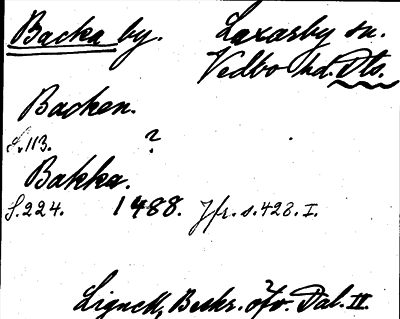 Backa by. Laxarby sn.
Vedbo hd. Dls.
Backen.
S. 113. ?
Bakka.
S. 224. 1488. Jfr. s. 428. I.
Lignell, Beskr. öfv. Dal. II.